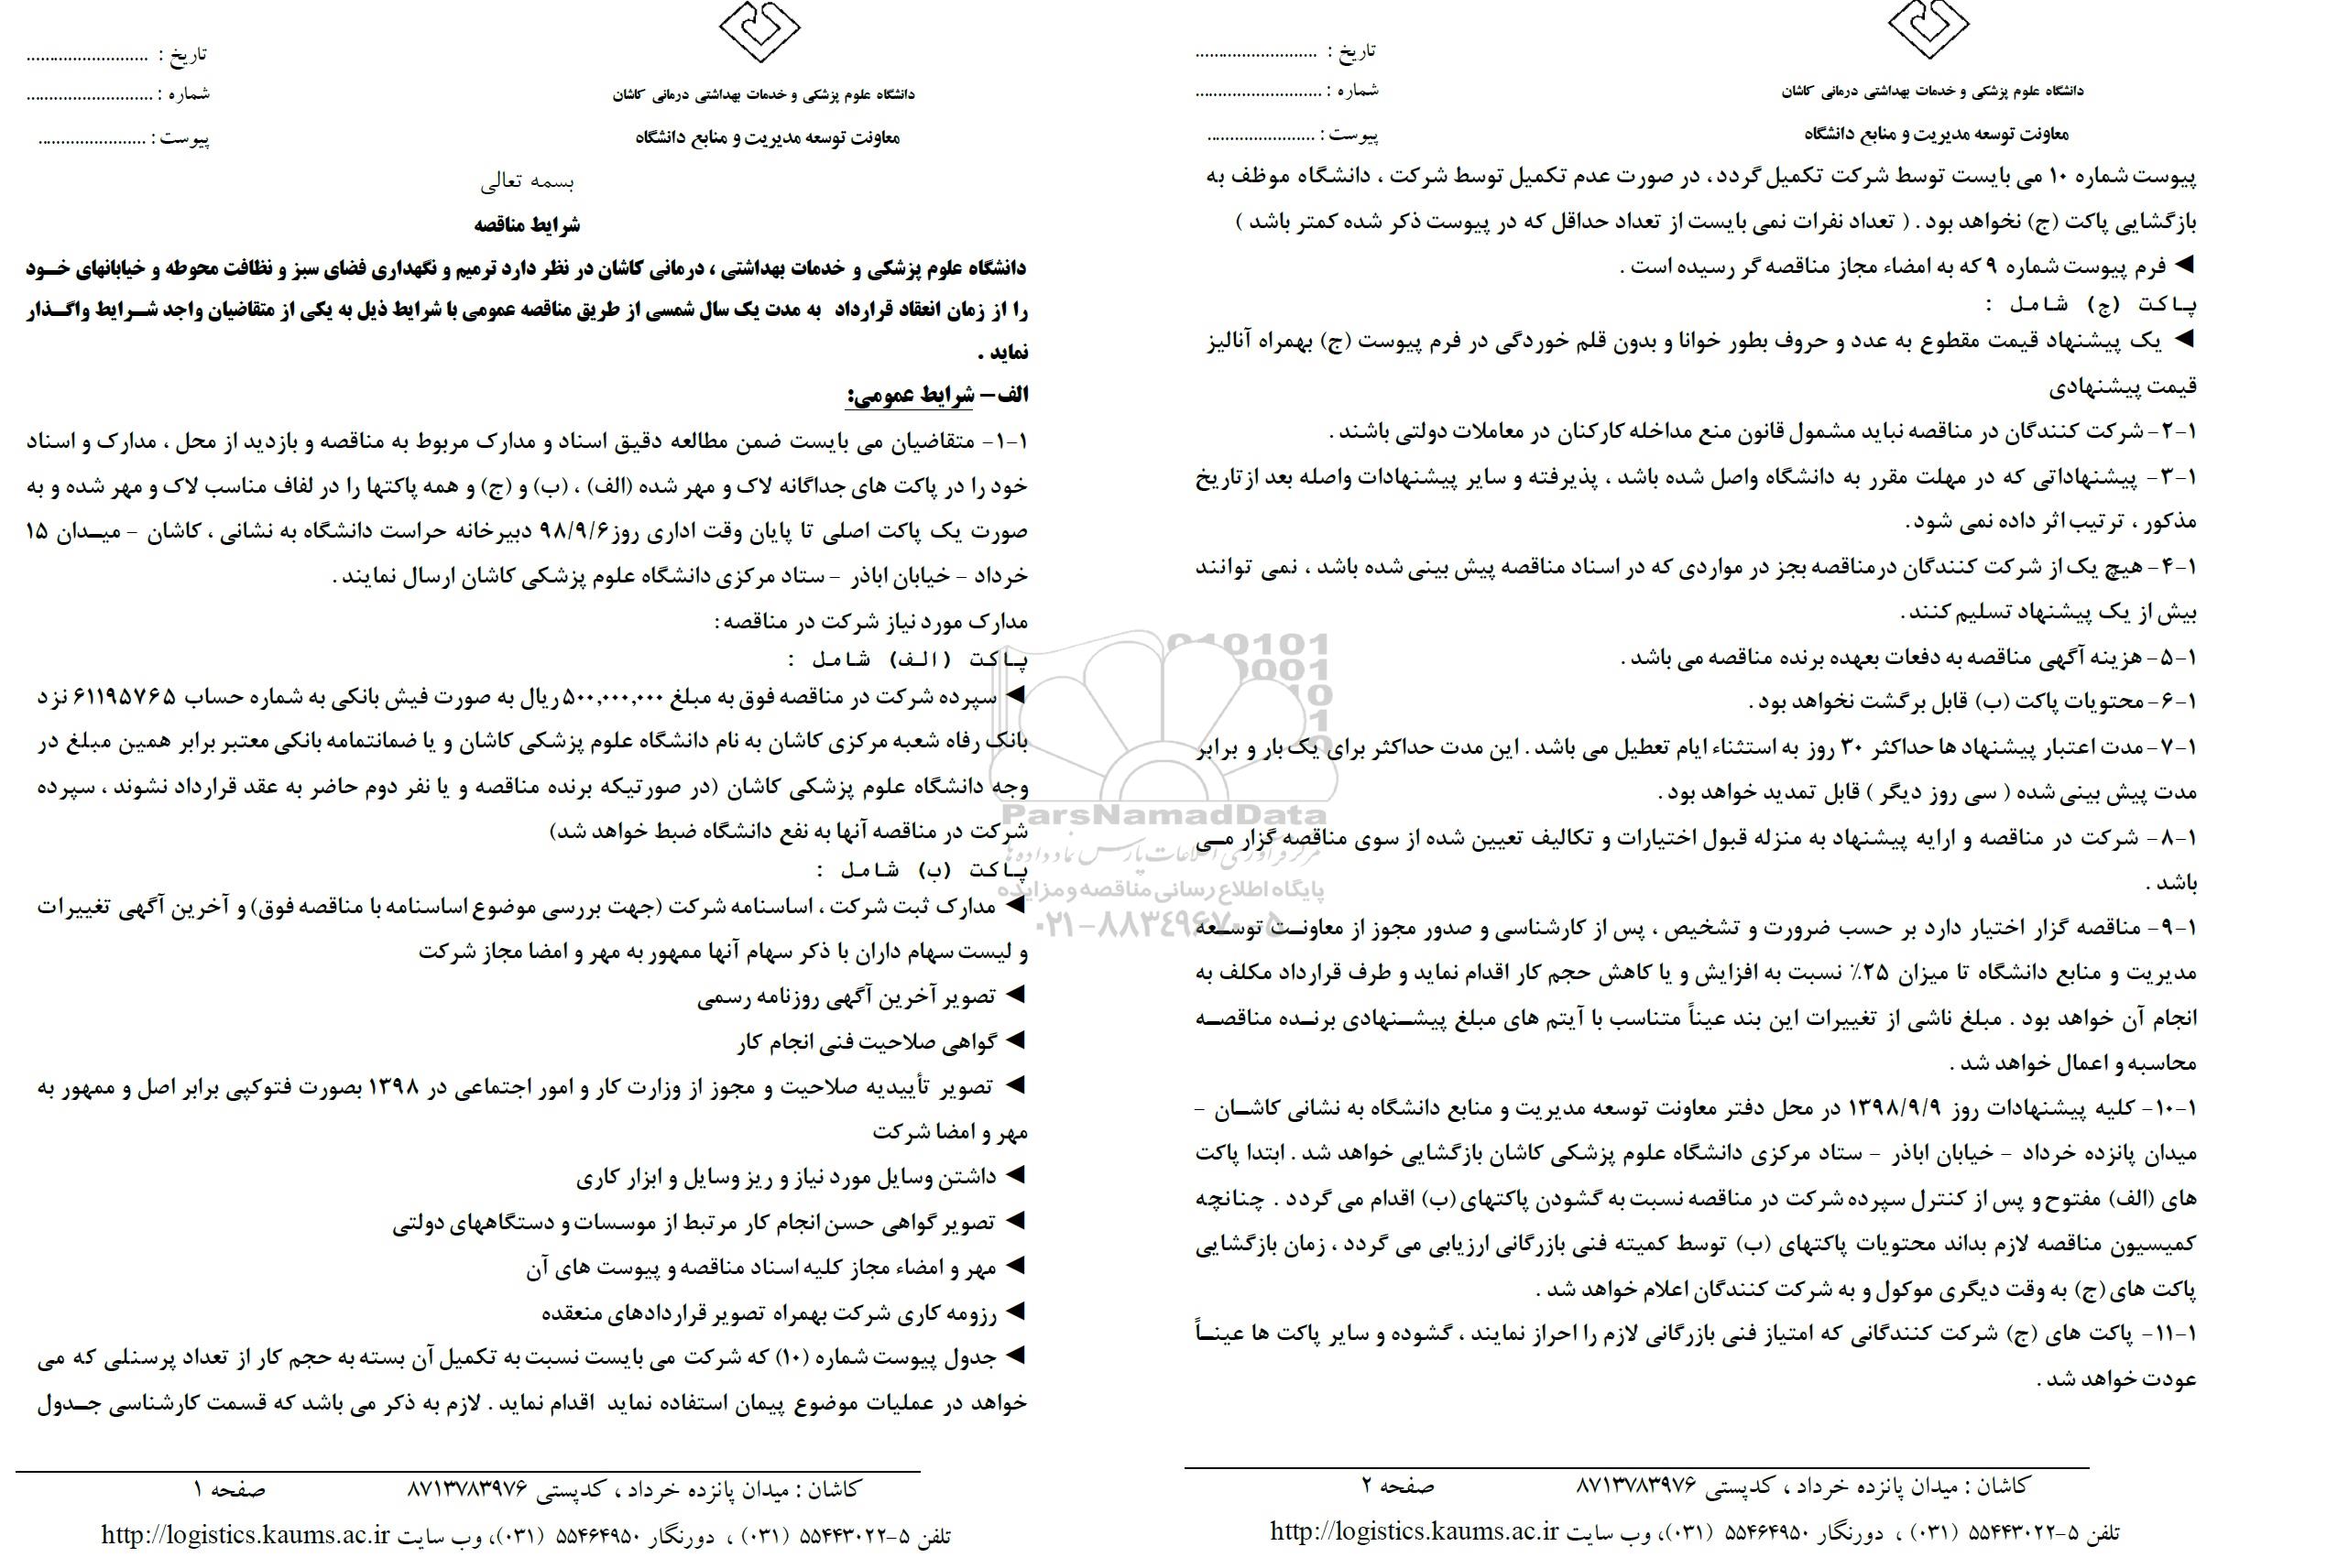 تاریخ : ..........................
شماره : ...........................
پیوست : .......................
دانشگاه علوم پزشکی و خدمات بهداشتی درمانی کاشان
معاونت توسعه مدیریت و منابع دانشگاه
بسمه تعالی
شرایط مناقصه
دانشگاه علوم پزشکی و خدمات بهداشتی ، درمانی کاشان در نظر دارد ترمیم و نگهداری فضای سبز و نظافت محوطه و خیابانهای خود
را از زمان انعقاد قرارداد به مدت یک سال شمسی از طریق مناقصه عمومی با شرایط ذیل به یکی از متقاضیان واجد شرایط واگذار
نماید .
الف – شرایط عمومی:
۱-۱- متقاضیان می بایست ضمن مطالعه دقیق اسناد و مدارک مربوط به مناقصه و بازدید از محل ، مدارک و اسناد
خود را در پاکت های جداگانه لاک و مهر شده (الف) ، (ب) و (ج) و همه پاکتها را در لفاف مناسب لاک و مهر شده و به
صورت یک پاکت اصلی تا پایان وقت اداری روز ۹۸/۹/۶ دبیرخانه حراست دانشگاه به نشانی ، کاشان – میدان ۱۵
خرداد – خیابان اباذر – ستاد مرکزی دانشگاه علوم پزشکی کاشان ارسال نمایند .
مدارک مورد نیاز شرکت در مناقصه :
پاکت (الف) شامل :
◄ سپرده شرکت در مناقصه فوق به مبلغ ۵۰۰,۰۰۰,۰۰۰ ریال به صورت فیش بانکی به شماره حساب ۶۱۱۹۵۷۶۵ نزد
بانک رفاه شعبه مرکزی کاشان به نام دانشگاه علوم پزشکی کاشان و یا ضمانتمامه بانکی معتبر برابر همین مبلغ در
وجه دانشگاه علوم پزشکی کاشان (در صورتیکه برنده مناقصه و یا نفر دوم حاضر به عقد قرارداد نشوند ، سپرده
شرکت در مناقصه آنها به نفع دانشگاه ضبط خواهد شد)
پاکت (ب) شامل :
◄ مدارک ثبت شرکت ، اساسنامه شرکت (جهت بررسی موضوع اساسنامه با مناقصه فوق) و آخرین آگهی تغییرات
و لیست سهام داران با ذکر سهام آنها ممهور به مهر و امضا مجاز شرکت
◄ تصویر آخرین آگهی روزنامه رسمی
◄ گواهی صلاحیت فنی انجام کار
◄ تصویر تأییدیه صلاحیت و مجوز از وزارت کار و امور اجتماعی در ۱۳۹۸ بصورت فتوکپی برابر اصل و ممهور به
مهر و امضا شرکت
◄ داشتن وسایل مورد نیاز و ریز وسایل و ابزار کاری
◄ تصویر گواهی حسن انجام کار مرتبط از موسسات و دستگاههای دولتی
◄ مهر و امضاء مجاز کلیه اسناد مناقصه و پیوست های آن
◄ رزومه کاری شرکت بهمراه تصویر قراردادهای منعقده
◄ جدول پیوست شماره (۱۰) که شرکت می بایست نسبت به تکمیل آن بسته به حجم کار از تعداد پرسنلی که می
خواهد در عملیات موضوع پیمان استفاده نماید اقدام نماید . لازم به ذکر می باشد که قسمت کارشناسی جدول
کاشان : میدان پانزده خرداد ، کدپستی ۸۷۱۳۷۸۳۹۷۶ صفحه ۱
تلفن ۵-۵۵۴۴۳۰۲۲ (۰۳۱) ، دورنگار ۵۵۴۶۴۹۵۰ (۰۳۱)، وب سایت http://logistics.kaums.ac.ir
تاریخ : ..........................
شماره : ...........................
پیوست : .......................
دانشگاه علوم پزشکی و خدمات بهداشتی درمانی کاشان
معاونت توسعه مدیریت و منابع دانشگاه
پیوست شماره ۱۰ می بایست توسط شرکت تکمیل گردد ، در صورت عدم تکمیل توسط شرکت ، دانشگاه موظف به
بازگشایی پاکت (ج) نخواهد بود . ( تعداد نفرات نمی بایست از تعداد حداقل که در پیوست ذکر شده کمتر باشد )
◄ فرم پیوست شماره ۹ که به امضاء مجاز مناقصه گر رسیده است .
پاکت (ج) شامل :
◄ یک پیشنهاد قیمت مقطوع به عدد و حروف بطور خوانا و بدون قلم خوردگی در فرم پیوست (ج) بهمراه آنالیز
قیمت پیشنهادی
۱-۲- شرکت کنندگان در مناقصه نباید مشمول قانون منع مداخله کارکنان در معاملات دولتی باشند .
۱-۳- پیشنهاداتی که در مهلت مقرر به دانشگاه واصل شده باشد ، پذیرفته و سایر پیشنهادات واصله بعد از تاریخ
مذکور ، ترتیب اثر داده نمی شود .
۱-۴- هیچ یک از شرکت کنندگان درمناقصه بجز در مواردی که در اسناد مناقصه پیش بینی شده باشد ، نمی توانند
بیش از یک پیشنهاد تسلیم کنند .
۱-۵- هزینه آگهی مناقصه به دفعات بعهده برنده مناقصه می باشد .
۱-۶- محتویات پاکت (ب) قابل برگشت نخواهد بود .
۱-۷- مدت اعتبار پیشنهاد ها حداکثر ۳۰ روز به استثناء ایام تعطیل می باشد . این مدت حداکثر برای یک بار و برابر
مدت پیش بینی شده ( سی روز دیگر ) قابل تمدید خواهد بود .
۱-۸- شرکت در مناقصه و ارایه پیشنهاد به منزله قبول اختیارات و تکالیف تعیین شده از سوی مناقصه گزار می
باشد .
۱-۹- مناقصه گزار اختیار دارد بر حسب ضرورت و تشخیص ، پس از کارشناسی و صدور مجوز از معاونت توسعه
مدیریت و منابع دانشگاه تا میزان ۲۵٪ نسبت به افزایش و یا کاهش حجم کار اقدام نماید و طرف قرارداد مکلف به
انجام آن خواهد بود . مبلغ ناشی از تغییرات این بند عیناً متناسب با آیتم های مبلغ پیشنهادی برنده مناقصه
محاسبه و اعمال خواهد شد .
۱-۱۰- کلیه پیشنهادات روز ۱۳۹۸/۹/۹ در محل دفتر معاونت توسعه مدیریت و منابع دانشگاه به نشانی کاشان –
میدان پانزده خرداد – خیابان اباذر – ستاد مرکزی دانشگاه علوم پزشکی کاشان بازگشایی خواهد شد . ابتدا پاکت
های (الف) مفتوح و پس از کنترل سپرده شرکت در مناقصه نسبت به گشودن پاکتهای (ب) اقدام می گردد . چنانچه
کمیسیون مناقصه لازم بداند محتویات پاکتهای (ب) توسط کمیته فنی بازرگانی ارزیابی می گردد ، زمان بازگشایی
پاکت های (ج) به وقت دیگری موکول و به شرکت کنندگان اعلام خواهد شد .
۱-۱۱- پاکت های (ج) شرکت کنندگانی که امتیاز فنی بازرگانی لازم را احراز نمایند ، گشوده و سایر پاکت ها عیناً
عودت خواهد شد .
کاشان : میدان پانزده خرداد ، کدپستی ۸۷۱۳۷۸۳۹۷۶ صفحه ۲
تلفن ۵-۵۵۴۴۳۰۲۲ (۰۳۱) ، دورنگار ۵۵۴۶۴۹۵۰ (۰۳۱)، وب سایت http://logistics.kaums.ac.ir
ParsNamadData
مرکز فرآوری اطلاعات پارس نماد داده ها
پایگاه اطلاع رسانی مناقصه و مزایده
۰۲۱-۸۸۳۴۹۶۷۰-۵